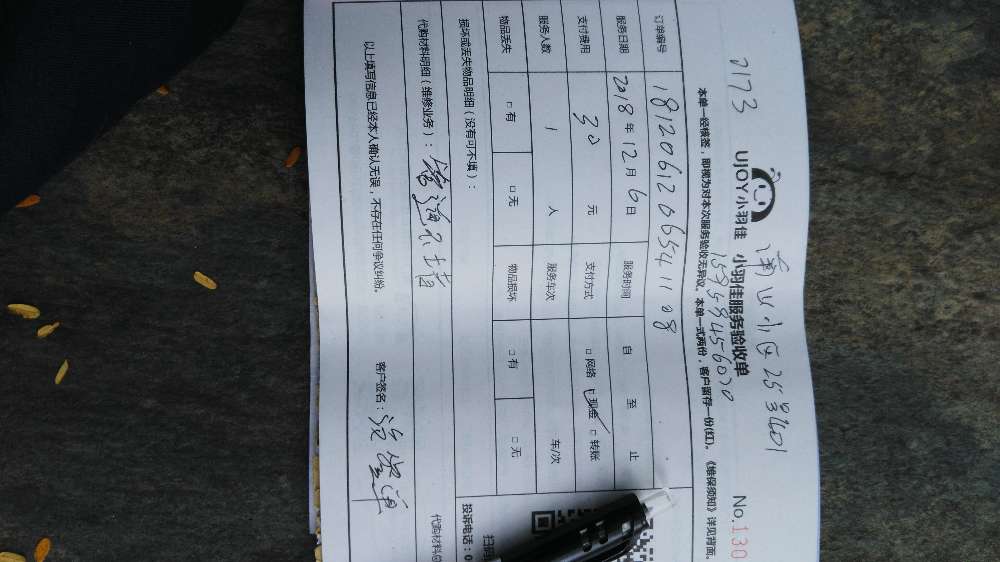 2173
UJOY小羽佳 小羽佳服务验收单 No.130
本单一经横签，即视为对本次服务验收无异议。本单一式两份，客户留存一份(红)。《维保须知》详见背面。
订单编号 18120612065411 08
服务日期 2018年12月6日 服务时间 自 至 止
支付费用 30 元 支付方式 □网络 □现金 □转账
服务人数 1 人 服务车次 车/次
物品丢失 □有 □无 物品损坏 □有 □无
损坏或丢失物品明细（没有可不填）：
代购材料明细（维修业务）：
以上填写信息已经本人确认无误，不存在任何争议纠纷。 客户签名：
扫码
投诉电话：0
代购材料总